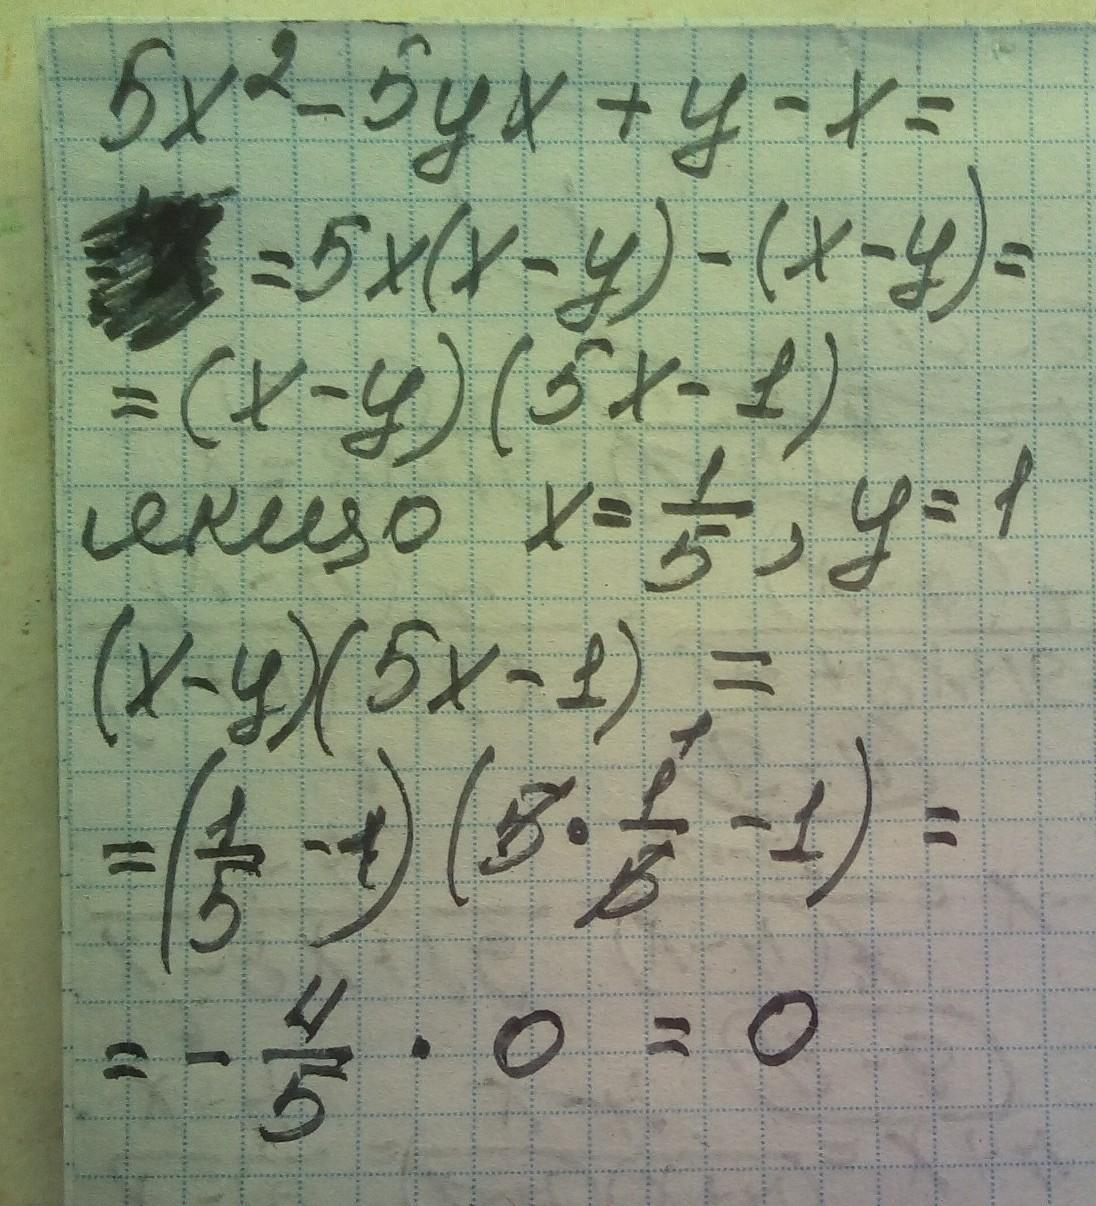 5x² - 5yx + y - x =
= 5x(x - y) - (x - y) =
= (x - y)(5x - 1)
якщо x = 1/5, y = 1
(x - y)(5x - 1) =
= (1/5 - 1)(5 · 1/5 - 1) =
= - 4/5 · 0 = 0